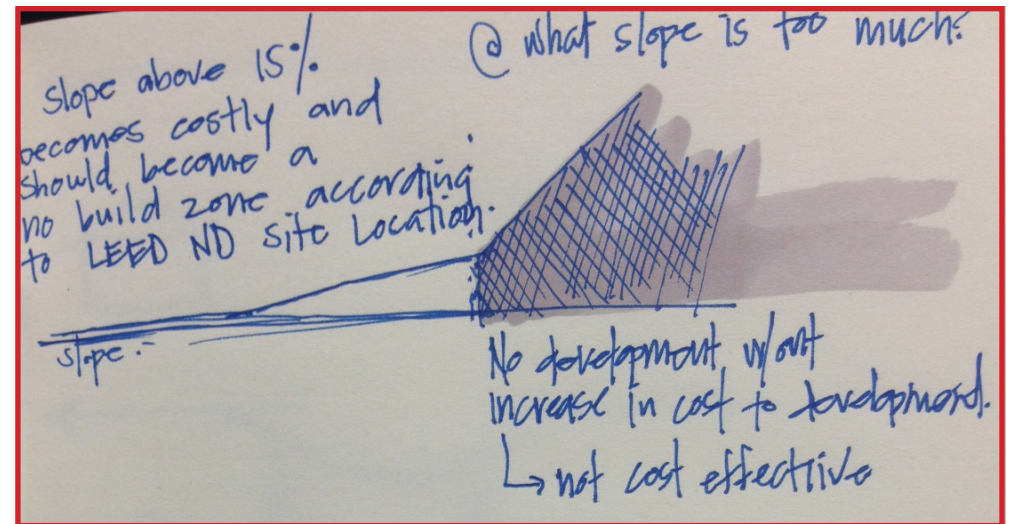 @ what slope is too much?
slope above 15%
becomes costly and
should become a
no build zone according
to LEED ND site Location.
slope :-
No development w/out
increase in cost to development.
↳ not cost effective